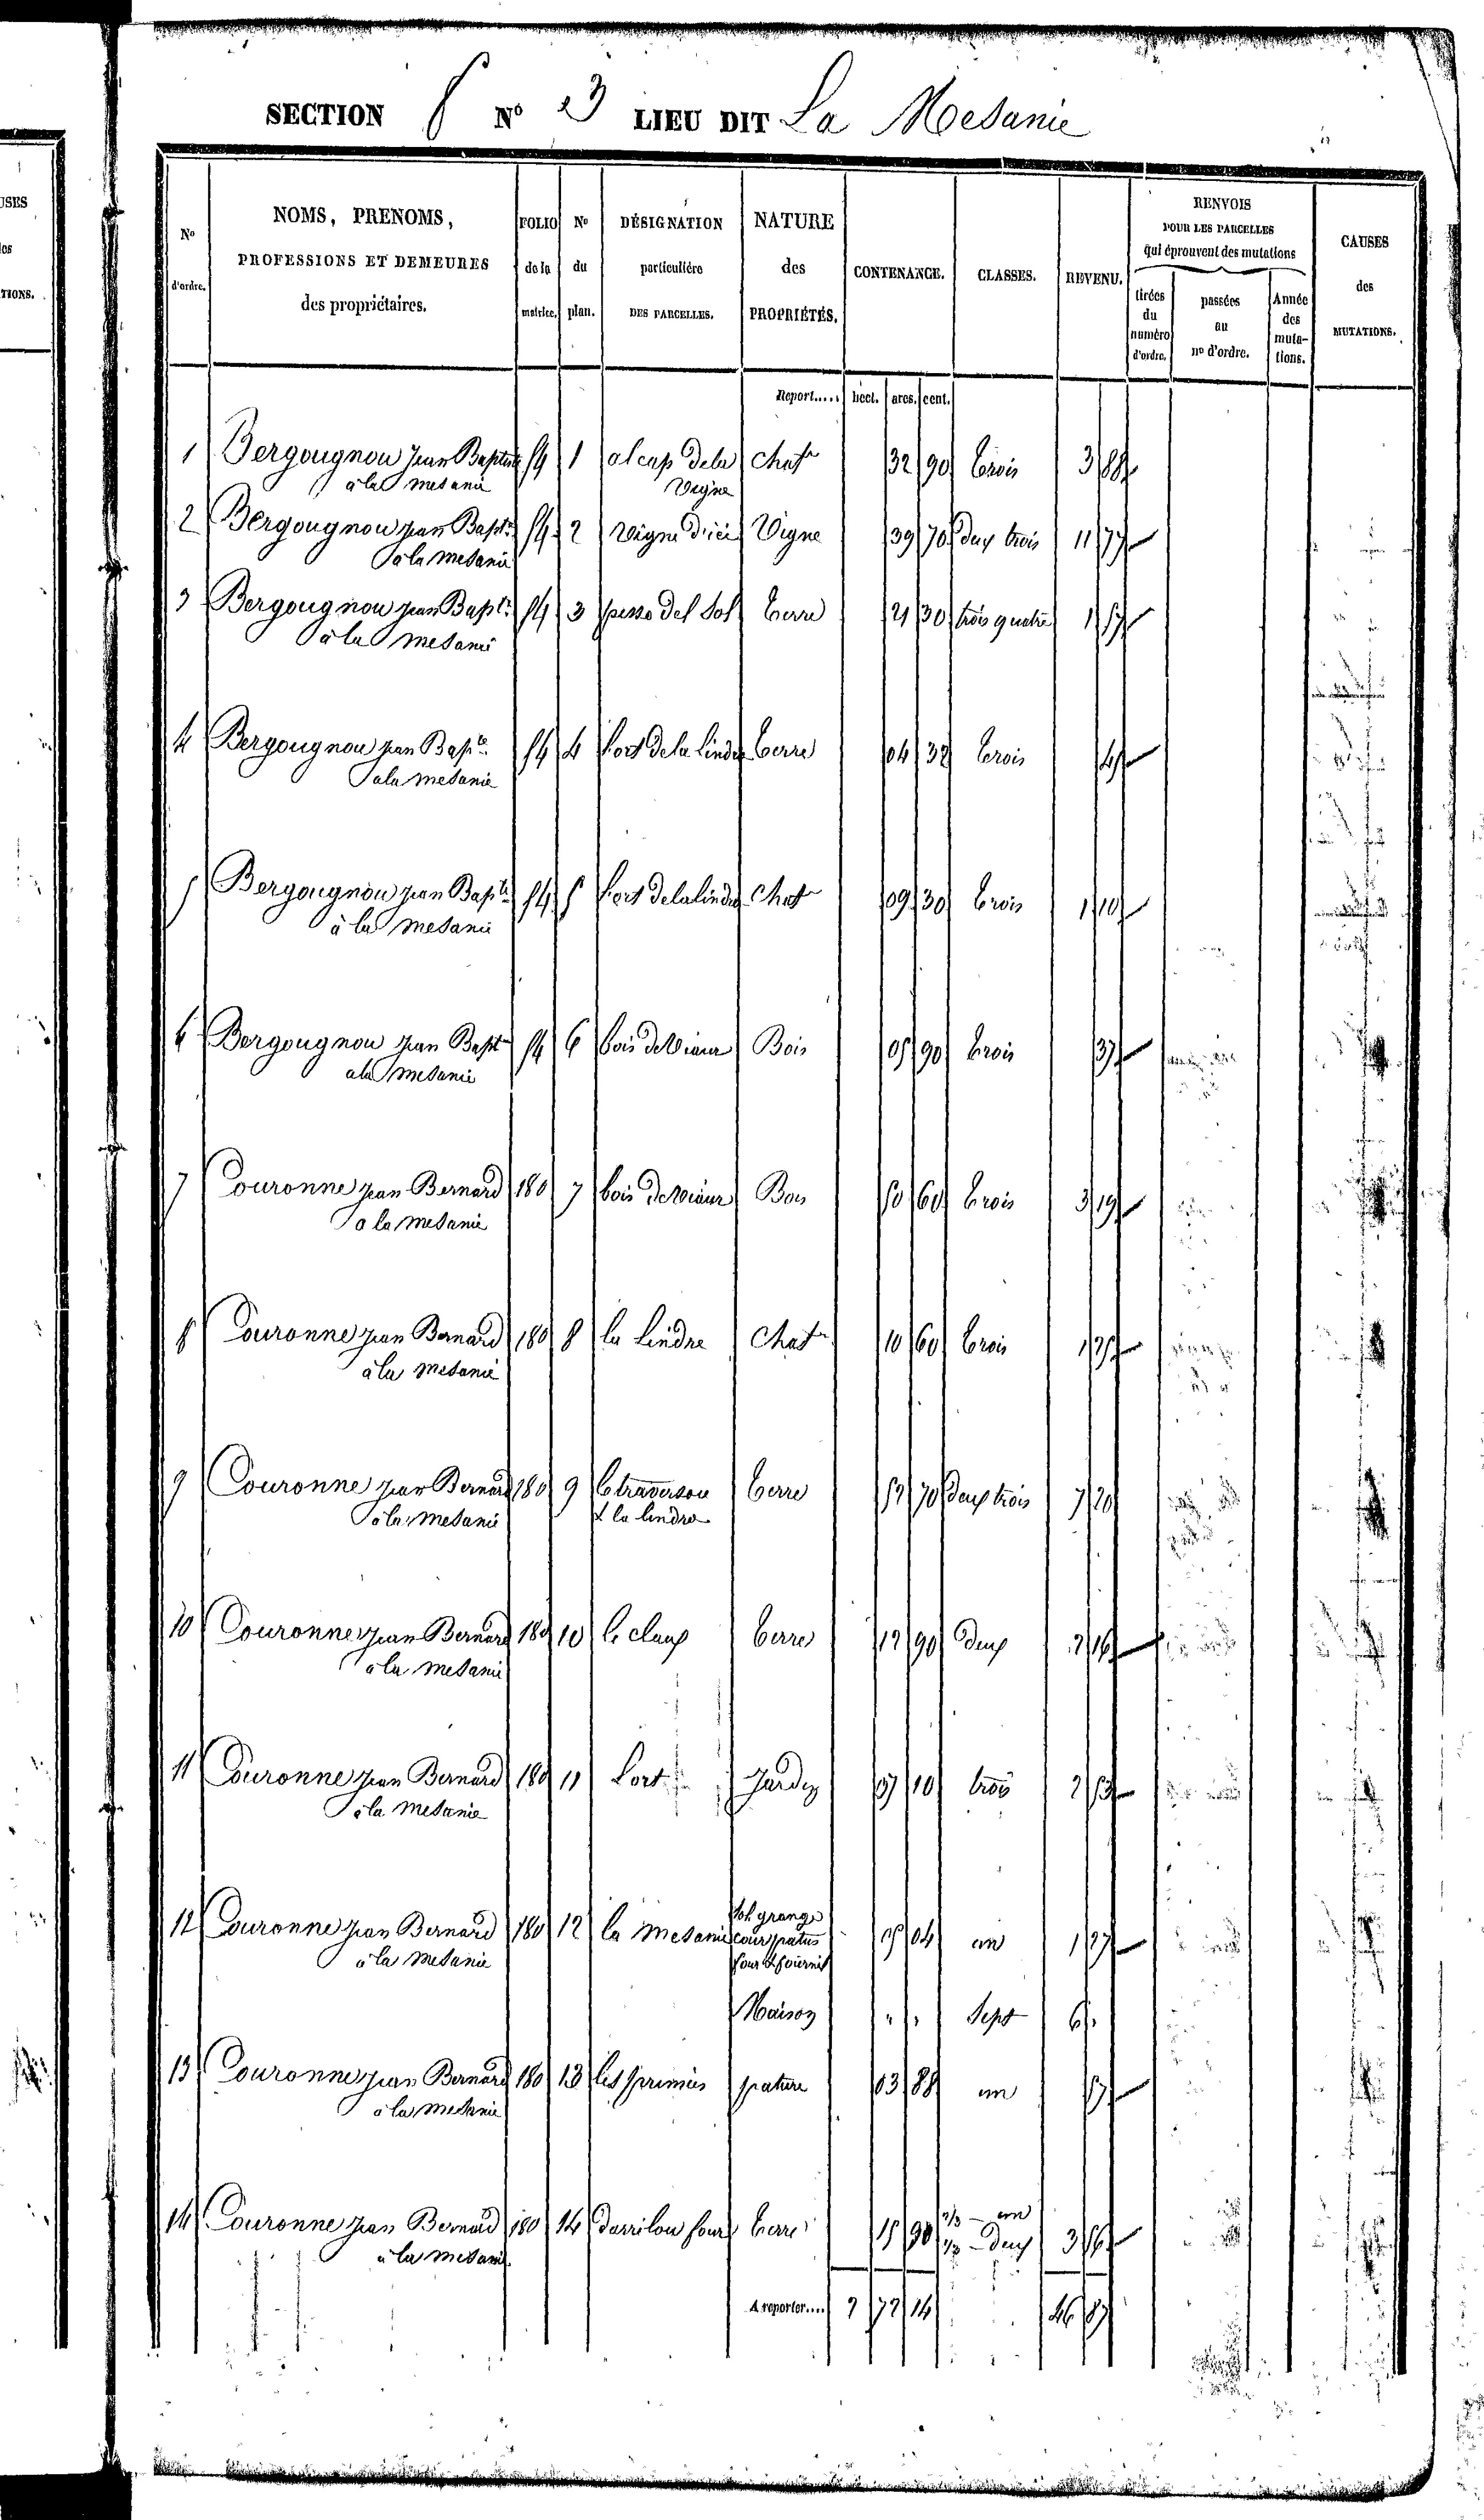 SECTION N° 23 LIEU DIT La Medanie
N° d'ordre. NOMS, PRENOMS, PROFESSIONS ET DEMEURES des propriétaires. FOLIO de la matrice. N° du plan. DÉSIGNATION particulière DES PARCELLES. NATURE des PROPRIÉTÉS. CONTENANCE. CLASSES. REVENU. RENVOIS POUR LES PARCELLES qui éprouvent des mutations tirées du numéro d'ordre. passées au n° d'ordre. Année des mutations. CAUSES des MUTATIONS.
Report..... hect. ares. cent.
1 Bergougnou Jean Baptiste 54 1 al cap dela chatr 32 90 trois 3 88
à la medanie Vigne
2 Bergougnou jean Bapte 54 2 Vigne d'ici Vigne 39 70 deux trois 11 77
à la medanie
3 Bergougnou jean Bapte 54 3 pesso del sol terre 21 30 trois quatre 1 57
à la medanie
4 Bergougnou jean Bapte 54 4 dela lindre terre 04 32 trois
à la medanie
5 Bergougnou jean Bapte 54 5 dela lindre chatr 09 30 trois 1 10
à la medanie
6 Bergougnou jean Bapte 54 6 bois de Viaur Bois 05 90 trois 37
à la medanie
7 Couronne jean Bernard 180 7 bois de viaur Bois 50 60 trois 3 19
à la medanie
8 Couronne jean Bernard 180 8 la lindre chatr 10 60 trois 1 25
à la medanie
9 Couronne jean Bernard 180 9 traversou terre 52 70 deux trois 7 20
à la medanie & la lindre
10 Couronne jean Bernard 180 10 le claux terre 12 90 deux 2 16
à la medanie
11 Couronne jean Bernard 180 11 Lort jardin 10 trois 2 53
à la medanie
12 Couronne jean Bernard 180 12 la medanie sol grange cour patus four & fournil 05 04 un 1 27
à la medanie
Maison " " sept 6 "
13 Couronne jean Bernard 180 13 les primies pature 03 88 un
à la medanie
14 Couronne jean Bernard 180 14 darrilou four terre 15 90 2/3 – un
1/3 – deux 3 56
à la medanie
A reporter.... 2 72 14 46 87
USES
TIONS.